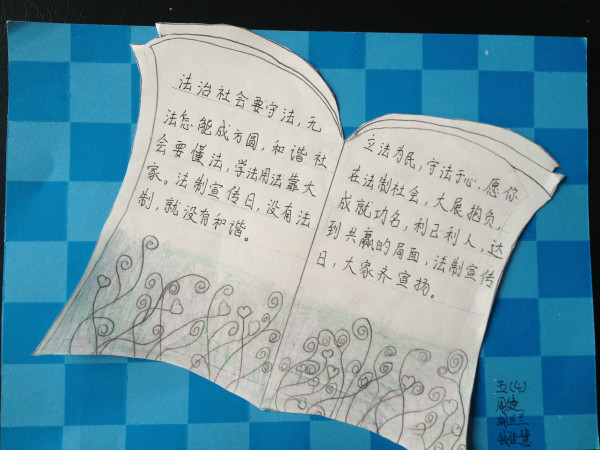 法治社会要守法，无
法怎能成方圆，和谐社
会要懂法，学法用法靠大
家。法制宣传日，没有法
制，就没有和谐。
立法为民，守法于心，愿你
在法制社会，大展抱负，
成就功名，利己利人，达
到共赢的局面，法制宣传
日，大家齐宣扬。
五(4)